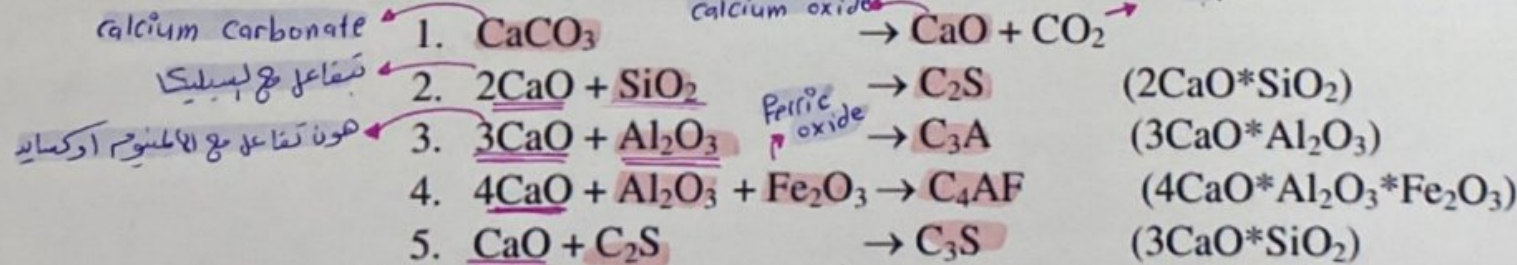 calcium carbonate 1. CaCO₃ calcium oxide → CaO + CO₂
تتفاعل مع لسيليكا 2. 2CaO + SiO₂ → C₂S (2CaO*SiO₂)
هون تفاعل مع الالمنيوم اوكسايد 3. 3CaO + Al₂O₃ Ferric oxide → C₃A (3CaO*Al₂O₃)
4. 4CaO + Al₂O₃ + Fe₂O₃ → C₄AF (4CaO*Al₂O₃*Fe₂O₃)
5. CaO + C₂S → C₃S (3CaO*SiO₂)